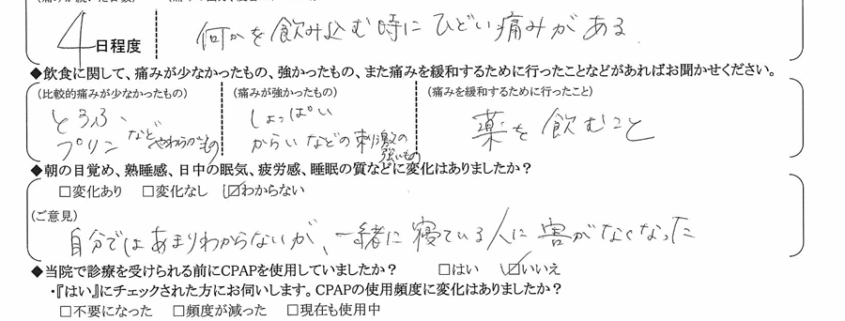 4日程度
何かを飲み込む時にひどい痛みがある
◆飲食に関して、痛みが少なかったもの、強かったもの、また痛みを緩和するために行ったことなどがあればお聞かせください。
(比較的痛みが少なかったもの) (痛みが強かったもの) (痛みを緩和するために行ったこと)
とうふ、プリンなどやわらかいもの
しょっぱい からいなどの刺激の強いもの
薬を飲むこと
◆朝の目覚め、熟睡感、日中の眠気、疲労感、睡眠の質などに変化はありましたか？
□変化あり □変化なし ☑わからない
(ご意見)
自分ではあまりわからないが、一緒に寝ている人に害がなくなった
◆当院で診療を受けられる前にCPAPを使用していましたか？ □はい ☑いいえ
・『はい』にチェックされた方にお伺いします。CPAPの使用頻度に変化はありましたか？
□不要になった □頻度が減った □現在も使用中